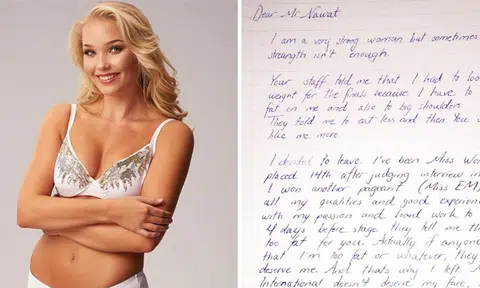 Dear Mr Nawat
I am a very strong woman but sometimes
strength isn't enough.
Your staff told me that I had to loo
weight for the finals because I have to
fat on me and also to big shoulders
They told me to eat less and then You w
like me more.
I decided to leave. I've been Miss Wor
placed 14th after judging interview in
I won another pageant (Miss EM)
all my qualities and good experien
with my passion and hard work to
4 days before stage they tell me th
too fat for you. Actually if anyone
that I'm too fat or whatever, they
deserve me. And thats why I left M
International doesn't deserve my face,